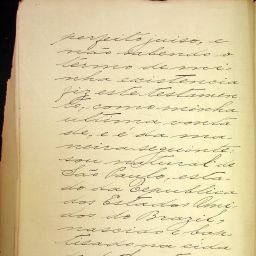 perfeito juiso, e
não sabendo o
termo de mi-
nha existencia
fiz este testamen
to, como minha
ultima vonta
de, e é da ma
neira seguinte:
sou natural de
São Paulo, esta-
do da Republica
dos Estados Uni
dos do Brazil,
nascido e bap-
tisado na cida